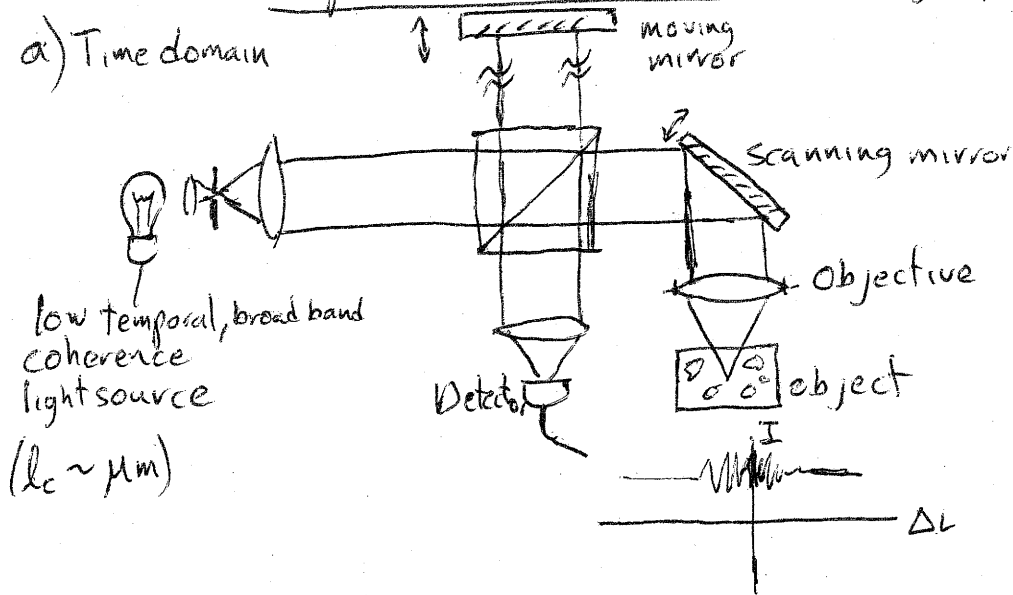 a) Time domain
moving
mirror
scanning mirror
Objective
low temporal, broad band
coherence
light source
(lc ~ μm)
Detector
object
I
ΔL